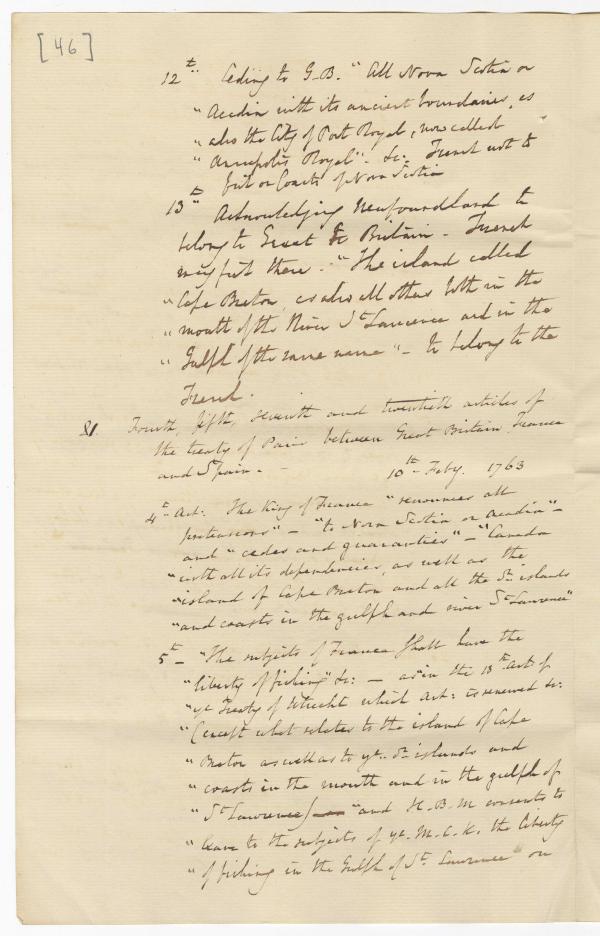 [46]
12th Ceding to G.B. "All Nova Scotia or
"Acadia with its ancient boundaries, as
"also the City of Port Royal, now called
"Annapolis Royal" - &c: French not to
fish on Coasts of Nova Scotia
13th Acknowledging Newfoundland to
belong to Great Britain - French
may fish there - "The island called
"Cape Breton, as also all others both in the
"mouth of the River St Lawrence and in the
"Gulph of the same name" - to belong to the
French.
81 Fourth, fifth, seventh and twentieth articles of
the treaty of Paris between Great Britain, France
and Spain. - 10th Feby. 1763
4th Art: The King of France "renounces all
pretensions" - "to Nova Scotia or Acadia" -
and "cedes and guaranties" - "Canada
"with all its dependencies, as well as the
"island of Cape Breton and all the Or islands
"and coasts in the gulph and river St Lawrence"
5th - "The subjects of France shall have the
"liberty of fishing" &c: - as in the 13th Art: of
"ye Treaty of Utrecht which Art: is renewed &c:
"(except what relates to the island of Cape
"Breton as well as to ye Or islands and
"coasts in the mouth and in the gulph of
"St Lawrence) "and H.B.M consents to
"leave to the subjects of ye M.C.K. the liberty
"of fishing in the Gulph of St Lawrence on